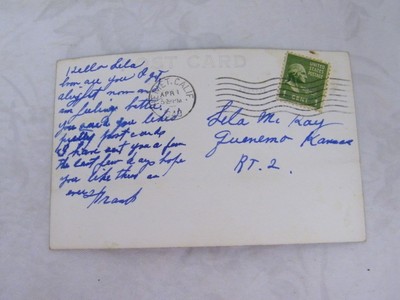 POST CARD
Hello Lela
how are you I got
alright now an
am feeling better.
You said you liked
pretty post cards
I have sent you a few
the last few days hope
you like them as
ever
Frank
CALIF.
APR 1
UNITED STATES
POSTAGE
1 CENT
Lela McKay
Quenemo Kansas
RT. 2.